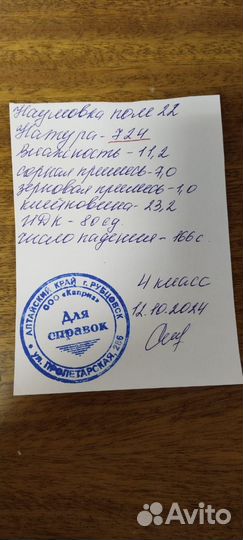 Наумовка поле 22
Натура - 724
Влажность - 11,2
сорная примесь - 7,0
зерновая примесь - 1,0
клейковина - 23,2
ИДК - 80 ед
число падения - 166 с.
4 класс
12.10.2024
АЛТАЙСКИЙ КРАЙ г. РУБЦОВСК
ООО «Каприз»
Для
справок
УЛ. ПРОЛЕТАРСКАЯ, 286
Avito